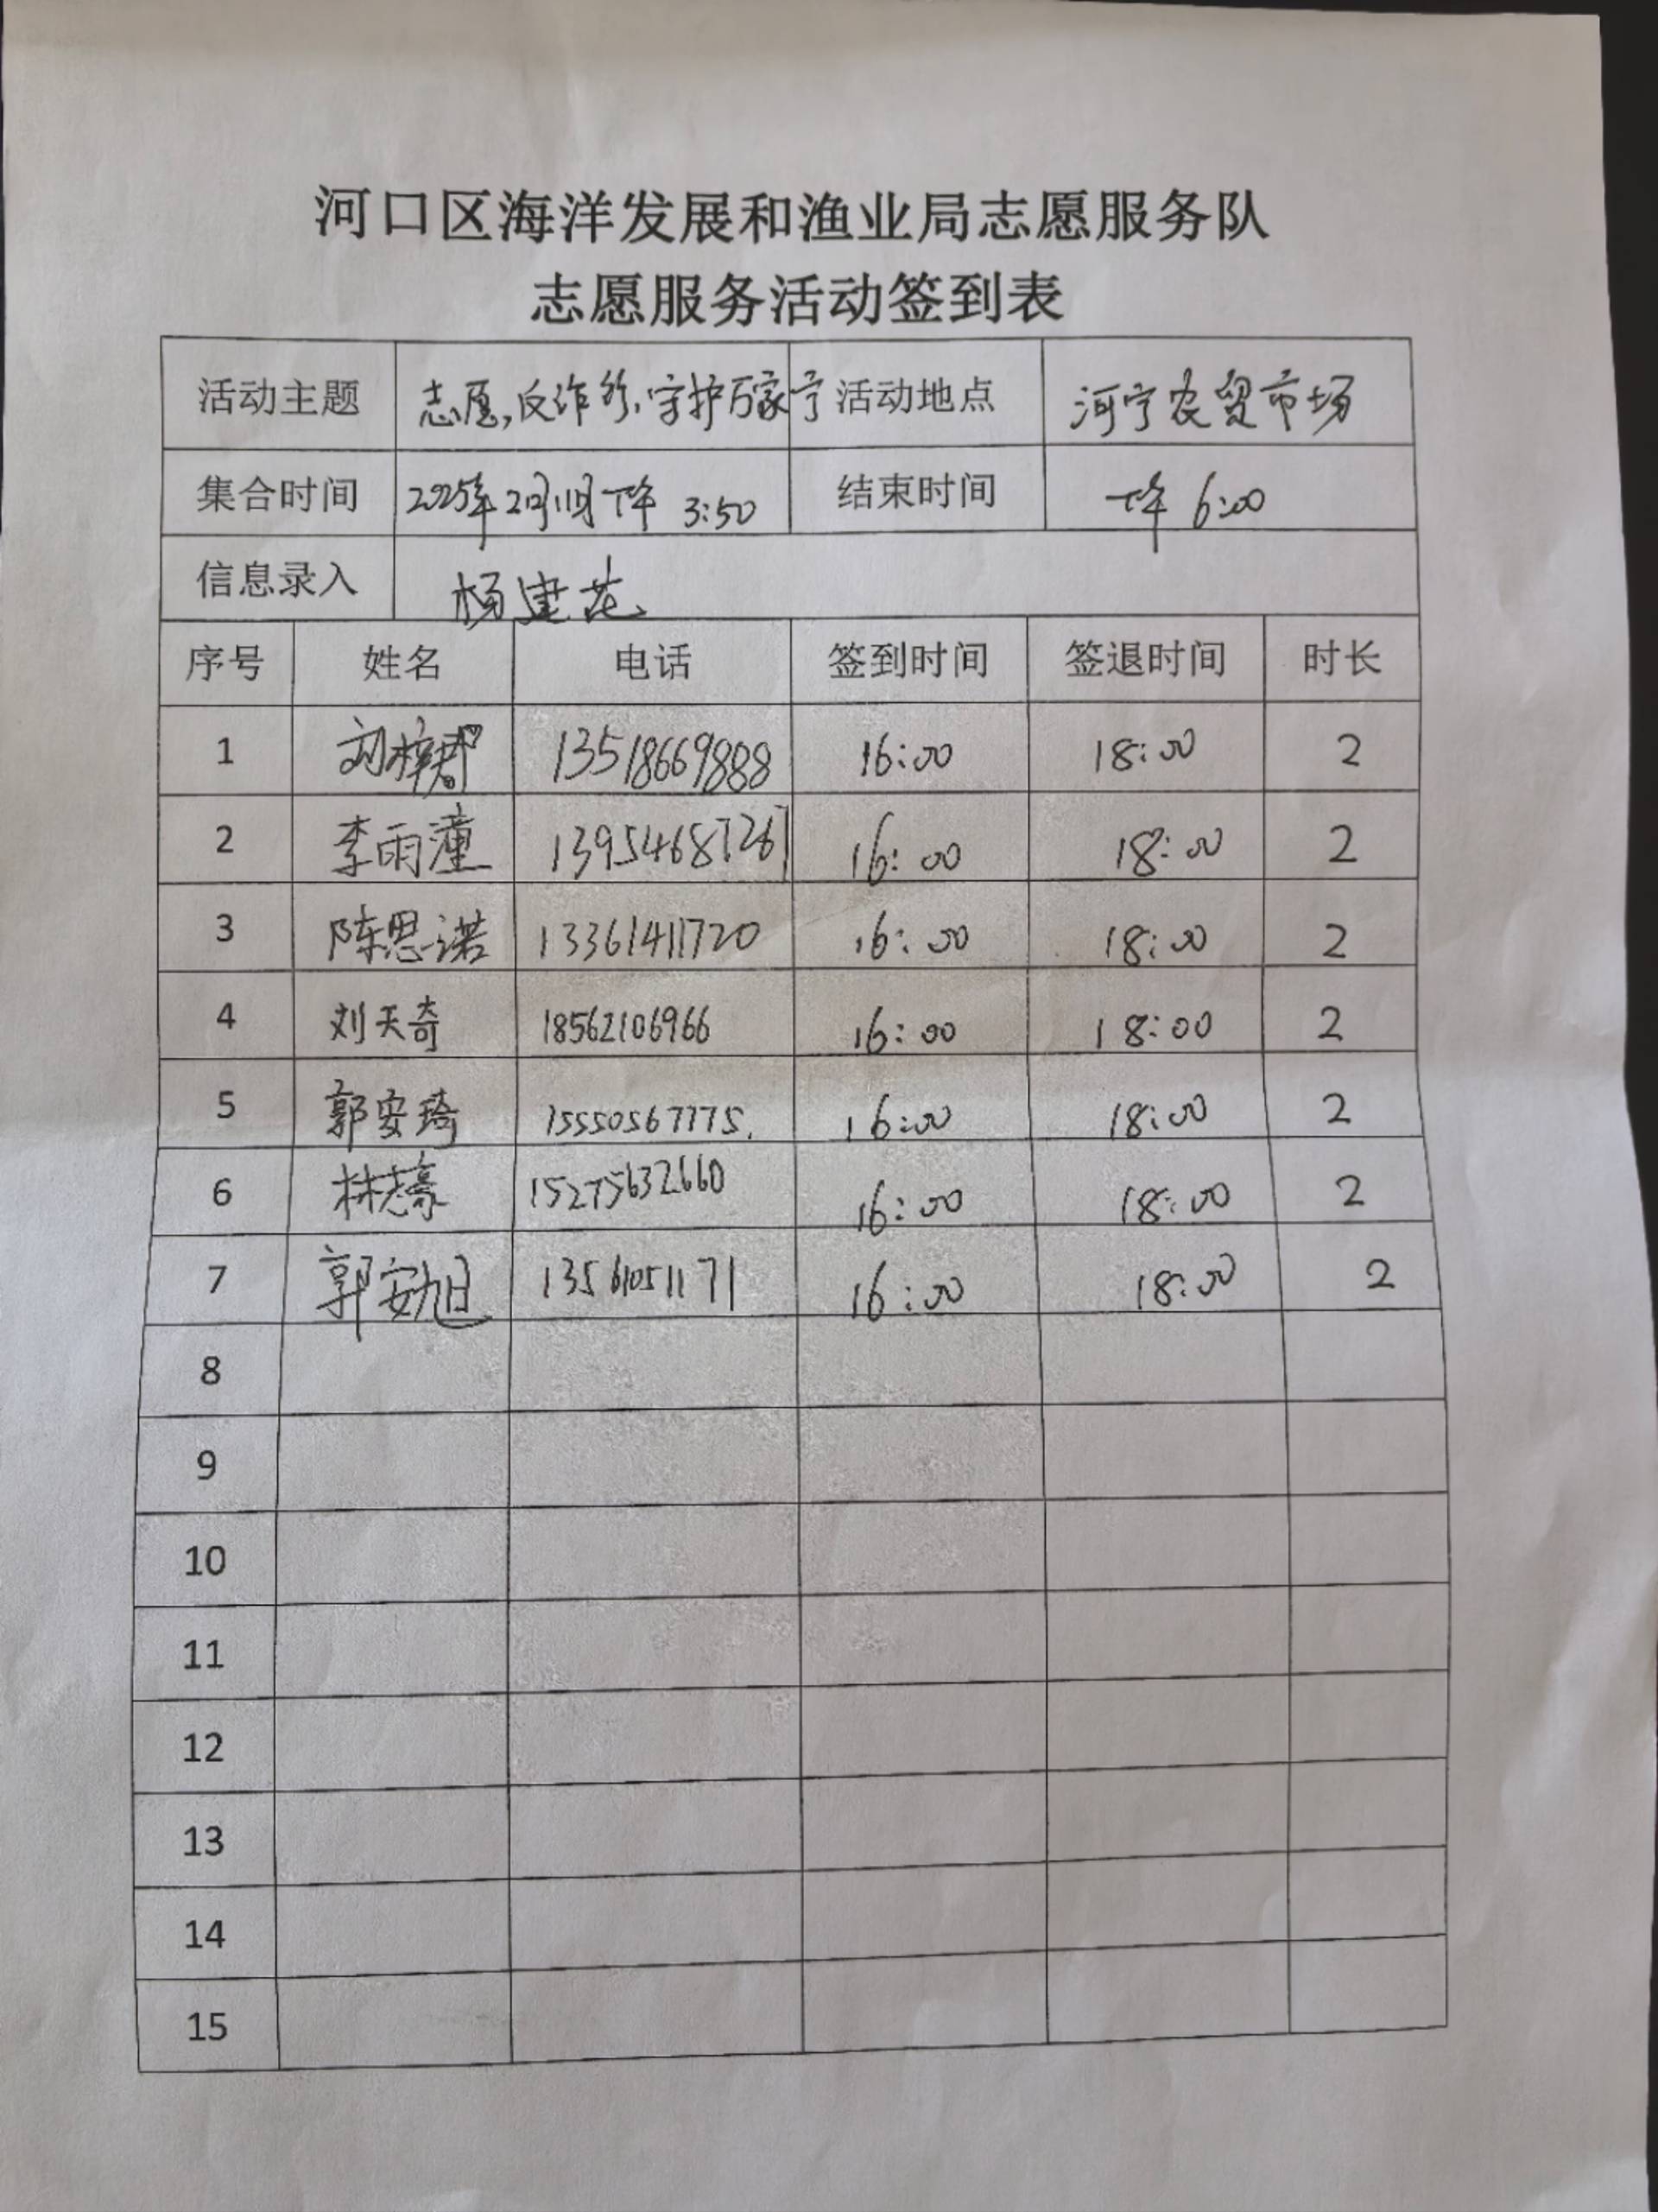 河口区海洋发展和渔业局志愿服务队
志愿服务活动签到表
活动主题 志愿,反诈行,守护万家宁 活动地点 河宁农贸市场
集合时间 2025年2月11日下午 3:50 结束时间 下午 6:00
信息录入 杨建花
序号 姓名 电话 签到时间 签退时间 时长
1 刘梓君 13518669888 16:00 18:00 2
2 李雨潼 13954687261 16:00 18:00 2
3 陈思诺 13361411720 16:00 18:00 2
4 刘天奇 18562106966 16:00 18:00 2
5 郭安琦 15550567775. 16:00 18:00 2
6 林志豪 15275632660 16:00 18:00 2
7 郭安旭 13561051171 16:00 18:00 2
8
9
10
11
12
13
14
15